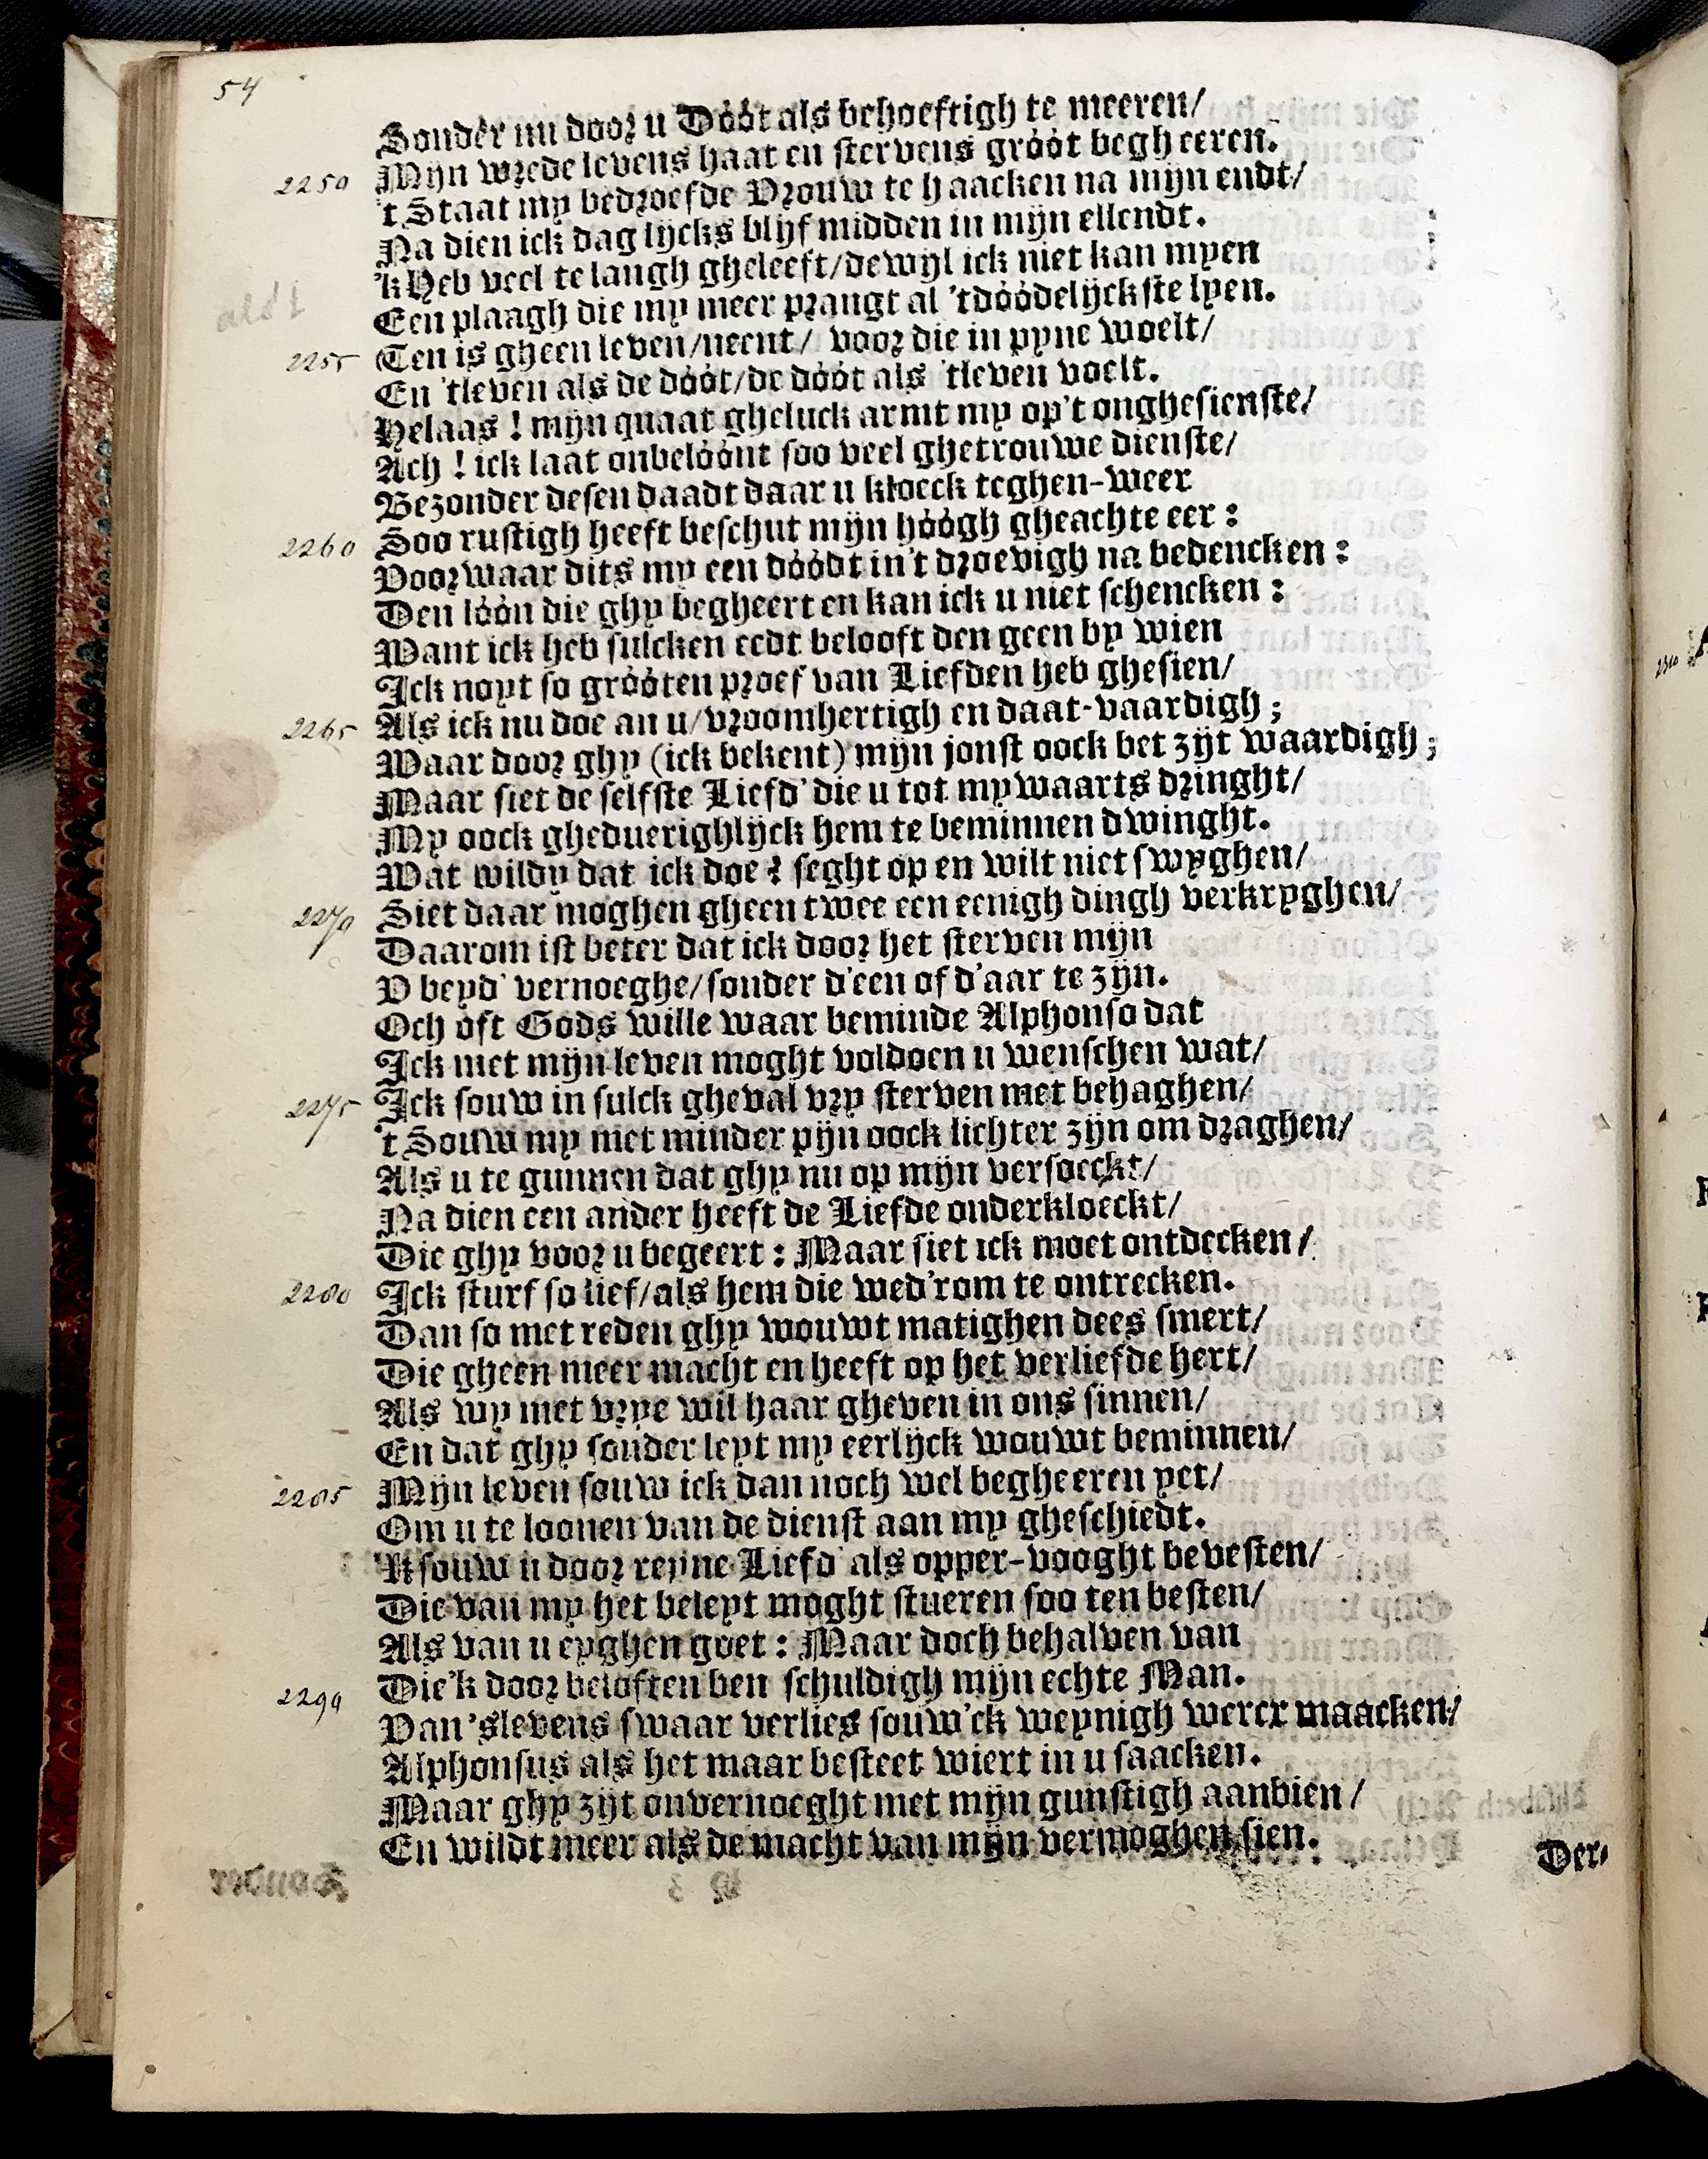 54
Sonder nu door u Dóót als behoeftigh te meeren/
Mijn wrede levens haat en stervens gróót begheeren.
2250 't Staat my bedroefde Vrouw te haacken na mijn endt/
Na dien ick daglijcks blijf midden in mijn ellendt.
'k Heb veel te langh gheleeft/dewijl ick niet kan myen
Een plaagh die my meer prangt al 'tdóódelijckste lyen.
2255 Ten is gheen leven/neent/ voor die in pyne woelt/
En 'tleven als de dóót/de dóót als 'tleven voelt.
Helaas ! mijn quaat gheluck armt my op't onghesienste/
Ach ! ick laat onbelóónt soo veel ghetrouwe dienste/
Bezonder desen daadt daar u kloeck teghen-weer
2260 Soo rustigh heeft beschut mijn hóógh gheachte eer :
Voorwaar dits my een dóódt in't droevigh na bedencken :
Den lóón die ghy begheert en kan ick u niet schencken :
Want ick heb sulcken eedt belooft den geen by wien
Ick noyt so gróóten proef van Liefden heb ghesien/
2265 Als ick nu doe an u/vroomhertigh en daat-vaardigh ;
Waar door ghy (ick bekent) mijn jonst oock bet zijt waardigh ;
Maar siet de selfste Liefd' die u tot mywaarts dringht/
My oock gheduerighlijck hem te beminnen dwinght.
Wat wildy dat ick doe ? seght op en wilt niet swyghen/
2270 Siet daar moghen gheen twee een eenigh dingh verkryghen/
Daarom ist beter dat ick door het sterven mijn
V beyd' vernoeghe/sonder d'een of d'aar te zijn.
Och oft Gods wille waar beminde Alphonso dat
Ick met mijn leven moght voldoen u wenschen wat/
2275 Ick souw in sulck gheval vry sterven met behaghen/
't Souw my met minder pijn oock lichter zijn om draghen/
Als u te gunnen dat ghy nu op mijn versoeckt/
Na dien een ander heeft de Liefde onderkloeckt/
Die ghy voor u begeert : Maar siet ick moet ontdecken/
2280 Ick sturf so lief/als hem die wed'rom te ontrecken.
Dan so met reden ghy wouwt matighen dees smert/
Die gheen meer macht en heeft op het verliefde hert/
Als wy met vrye wil haar gheven in ons sinnen/
En dat ghy sonder leyt my eerlijck wouwt beminnen/
2285 Mijn leven souw ick dan noch wel begheeren yet/
Om u te loonen van de dienst aan my gheschiedt.
'K souw u door reyne Liefd' als opper-vooght bevesten/
Die van my het beleyt moght stueren soo ten besten/
Als van u eyghen goet : Maar doch behalven van
2290 Die'k door beloften ben schuldigh mijn echte Man.
Van 'slevens swaar verlies souw'ck weynigh wercx maacken/
Alphonsus als het maar besteet wiert in u saacken.
Maar ghy zijt onvernoeght met mijn gunstigh aanbien/
En wildt meer als de macht van mijn vermoghen sien.
Der-